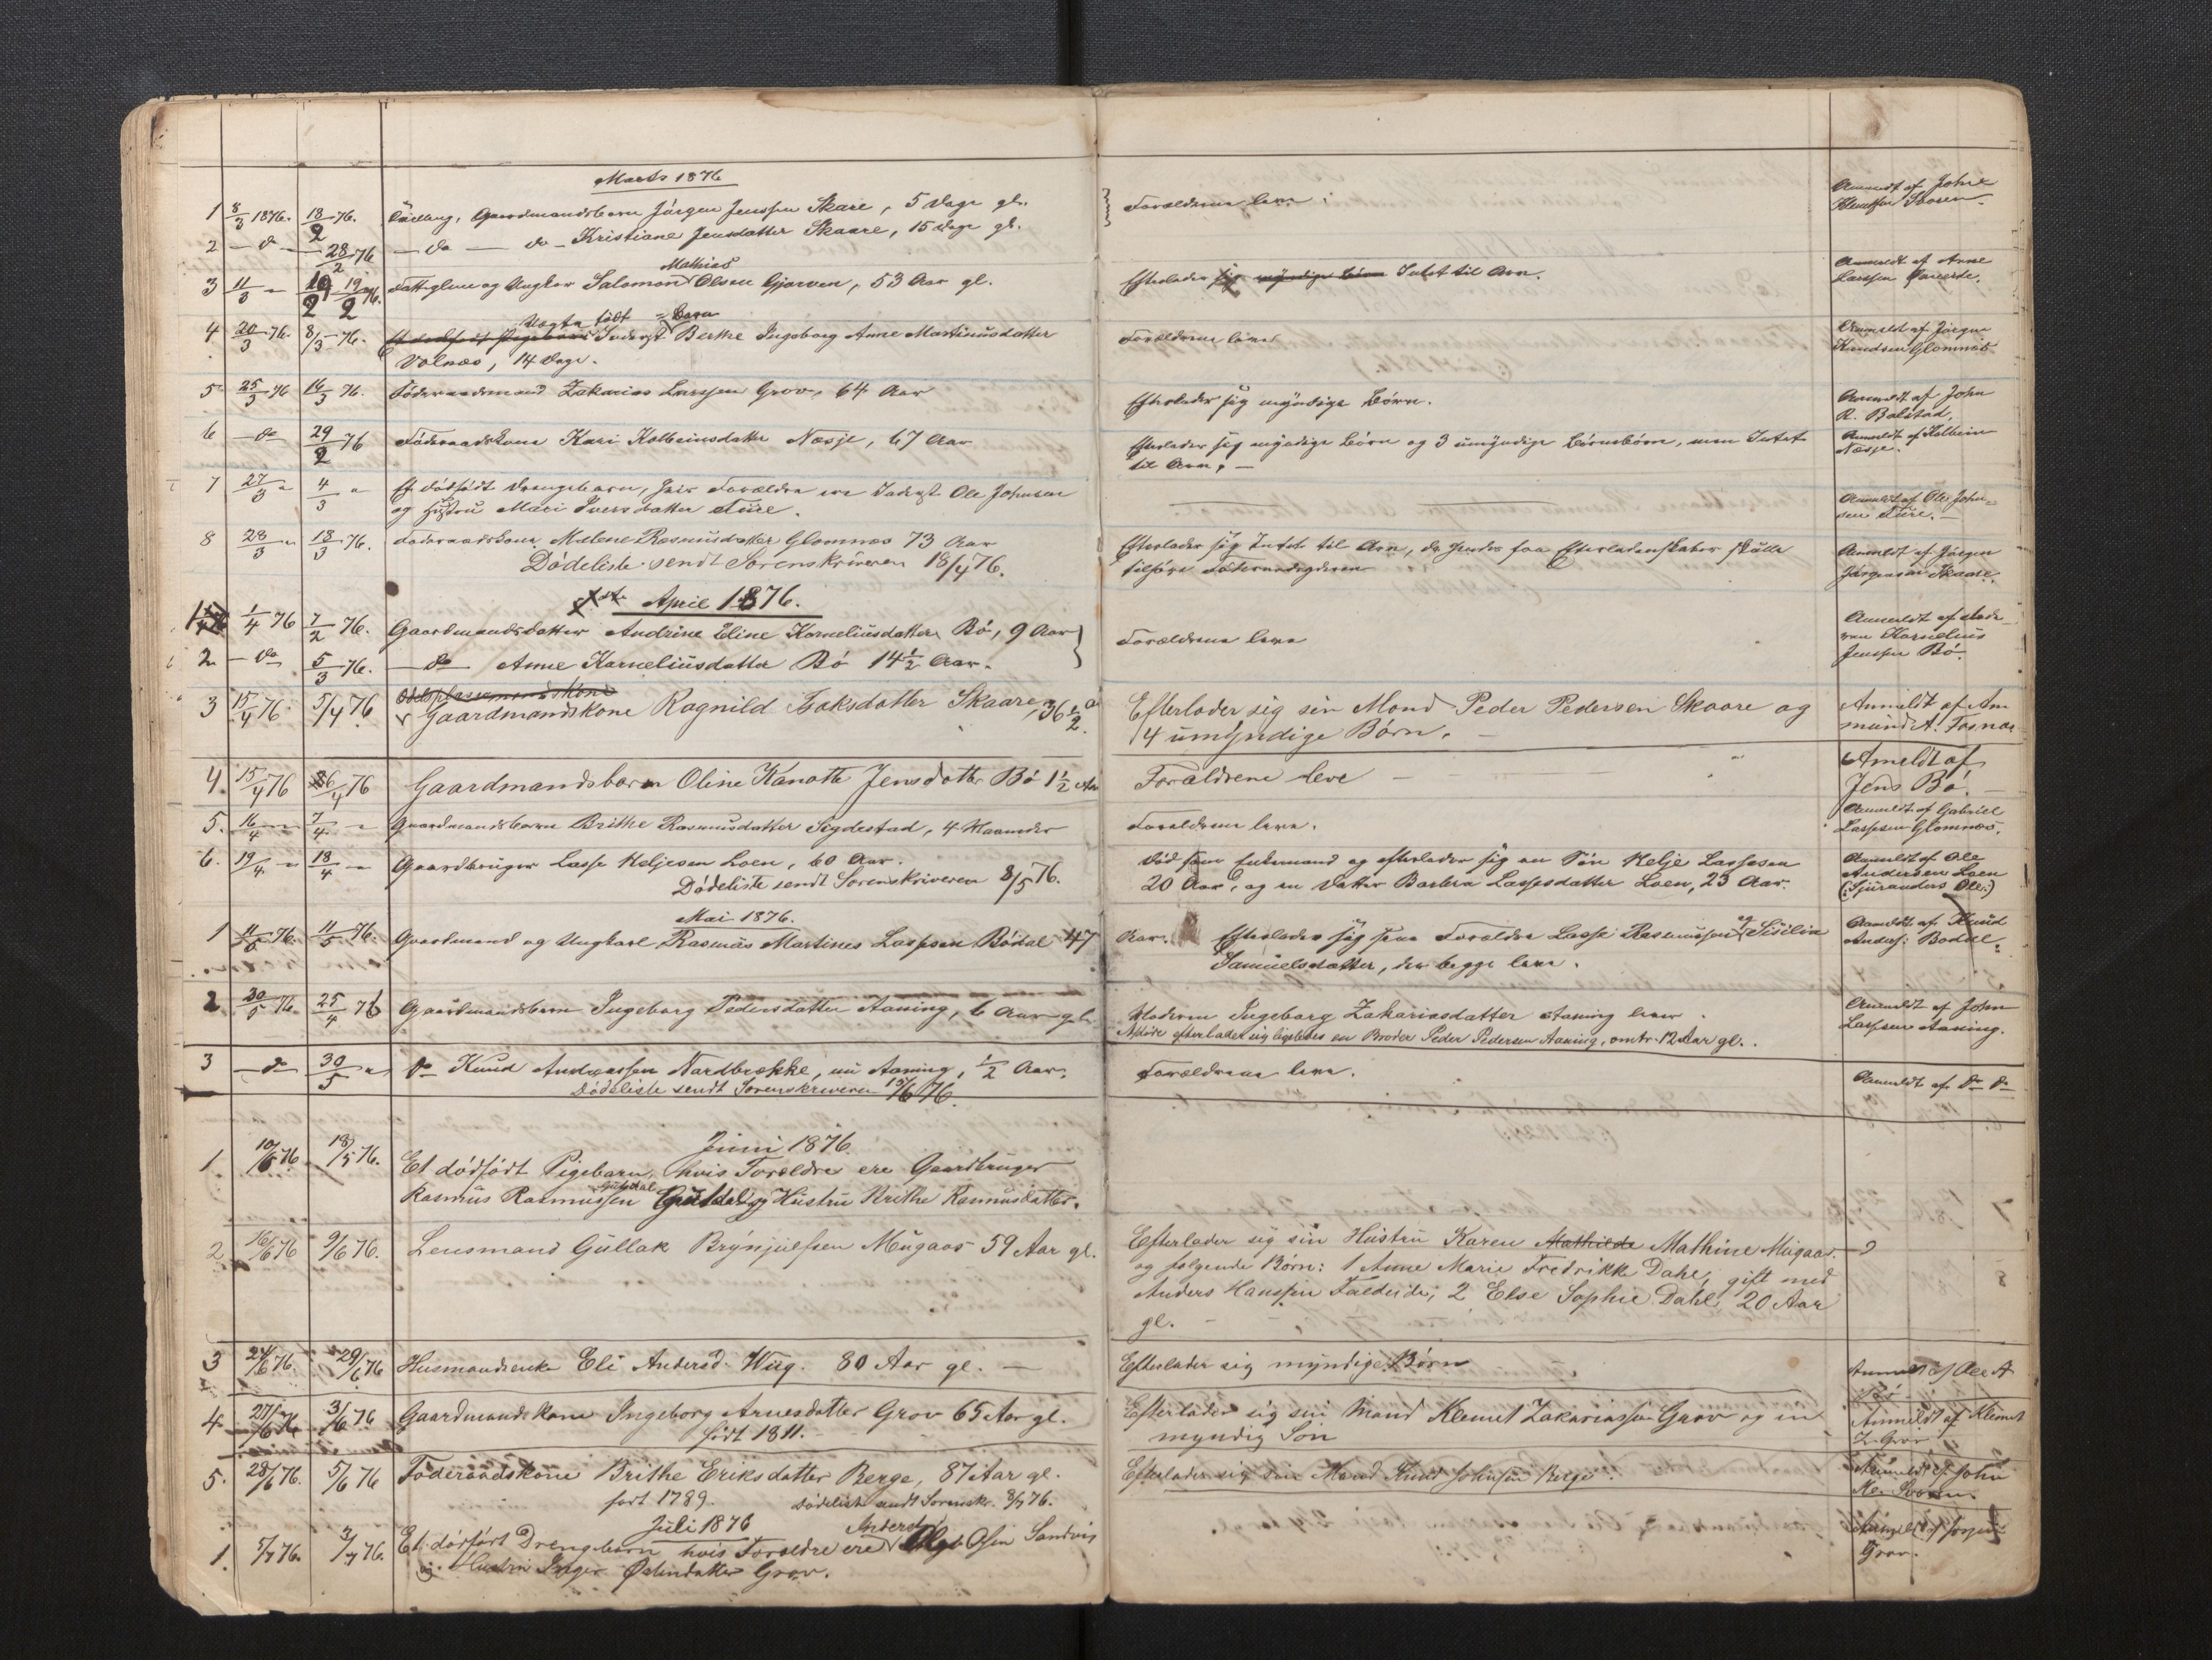 Marts 1876
1 8/3 1876. 18/2 76. Tvilling, Gaardmandsbarn Jörgen Jenssen Skare, 5 Dage gl. Forældrene leve Anmeldt af John
2 — do — 28/2 76 — do — do — Kristiane Jensdatter Skaare, 15 Dage gl.
Mathias
3 11/3 19/2 76. Fattiglem og Ungkar Salomon Olsen Gjørven, 53 Aar gl. Efterlader sig myndige Børn Intet til Arv. Anmeldt af Arne
Larssen
Uægte født Barn
4 20/3 76. 8/3 76. Inderst Berthe Ingeborg Anne Martinusdatter Forældrene lever Anmeldt af Jörgen
Volnæs, 14 Dage. Knudsen Glomnæs
5 25/3 76 16/3 76. Föderaadsmand Zakarias Larssen Grov, 64 Aar Efterlader sig myndige Börn. Anmeldt af John
R. Bolstad.
6 — do 29/2 76 Föderaadskone Kari Kolbeinsdatter Næsje, 67 Aar Efterlader sig myndige Börn og 3 umyndige Börnebörn, men Intet Anmeldt af Kolbein
til Arv. — Næsje.
7 27/3 4/3 Et dödfödt Drengebarn, hvis Forældre ere Inderst Ole Johnsen Anmeldt af Ole John-
og Hustru Mari Iversdatter Türe. sen Türe.
8 28/3 18/3 76. Föderaadskone Malene Rasmusdatter Glomnæs 73 Aar Efterlader sig Intet til Arv, da hendes faa Efterladenskaber skulle Anmeldt af Jörgen
Dödeliste sendt Sorenskriveren 18/4 76. tilhöre Jörgensen Skaare.
April 1876.
1/4 76 7/2 76. Gaardmandsdatter Andrine Eline Korneliusdatter Bö, 9 Aar Forældrene leve Anmeldt af Fade-
ren Kornelius
2 — do 5/3 76. — do — Anne Korneliusdatter Bö 14 1/2 Aar. Jenssen Bö.
3 15/4 76. 5/4 76 Gaardmandskone Ragnild Isaksdatter Skaare, 36 1/2 a. Efterlader sig sin Mand Peder Pedersen Skaare og Anmeldt af Am
4 umyndige Börn. — mund A. Fosnæs
4 15/4 76 6/4 76 Gaardmandsbarn Oline Kanotte Jensdatter Bö 1 1/2 Aar Forældrene leve Anmeldt af
Jens Bö. —
5. 16/4 7/4 Gaardmandsbarn Brithe Rasmusdatter Sigdestad, 4 Maaneder Forældrene leve. Anmeldt af Gabriel
Lassesen Glomnæs.
6. 19/4 18/4 Gaardbruger Lasse Heljesen Loen, 60 Aar. Död som Enkemand og efterlader sig en Sön Helje Lassesen Anmeldt af Ole
Dödeliste sendt Sorenskriveren 8/5 76. 20 Aar, og en Datter Barbra Lassesdatter Loen, 23 Aar. Andersen Loen
(Sjuranders Ole.)
Mai 1876.
1 11/5 76. 11/5 76. Gaardmand og Ungkarl Rasmus Martines Lassesen Bödal 47 Aar. Efterlader sig sine Forældre Lasse Rasmussen og Sisilia Anmeldt af Knud
Samuelsdatter, der begge leve. Anders: Bødal.
2 30/5 76. 25/4 76 Gaardmandsbarn Ingeborg Pedersdatter Aaning, 6 Aar gl. Moderen Ingeborg Zakariasdatter Aaning lever. Anmeldt af John
Afdöde efterlader sig ligeledes en Broder Peder Pedersen Aaning, omtr. 12 Aar gl. Lassesen Aaning.
3 — do 30/5 do Knud Andreassen Nordbrække, nu Aaning, 1/2 Aar. Forældrene leve. Anmeldt af do do
Dödeliste sendt Sorenskriveren 15/6 76.
Juni 1876.
1. 10/6 76 18/5 76. Et dödfödt Pigebarn, hvis Forældre ere Gaardbruger
Rasmus Rasmussen Guldal og Hustru Brithe Rasmusdatter.
2 16/6 76 9/6 76. Lensmand Gullak Brynjulfsen Mugaas 59 Aar gl. Efterlader sig sin Hustru Karen Mathilde Mathine Mugaas
og følgende Börn: 1 Anne Marie Fredrikke Dahl, gift med
Anders Hanssen Faleide; 2 Else Sophie Dahl 20 Aar
gl.
3 24/6 76. 29/6 76 Husmandsenke Eli Andersd. Wiig. 80 Aar gl. — Efterlader sig myndige Börn Anmeldt af Ole A
4 27/6 76 3/6 76 Gaardmandskone Ingeborg Arnesdatter Grov 65 Aar gl. Efterlader sig sin Mand Klemet Zakariassen Grov og en Anmeldt af Klemet
födt 1811. myndig Sön Z. Grov
5. 28/6 76. 5/6 76 Föderaadskone Brithe Eriksdatter Berge, 87 Aar gl. Efterlader sig sin Mand Knud Johnsen Berge. Anmeldt af John
födt 1789. Dödeliste sendt Sorenskr. 8/7 76.
Juli 1876
Anders
1. 5/7 76. 3/7 76. Et dödfödt Drengebarn hvis Forældre ere Olsen Sandvig Anmeldt af
og Hustru Inger Östensdatter Grov. Grov.